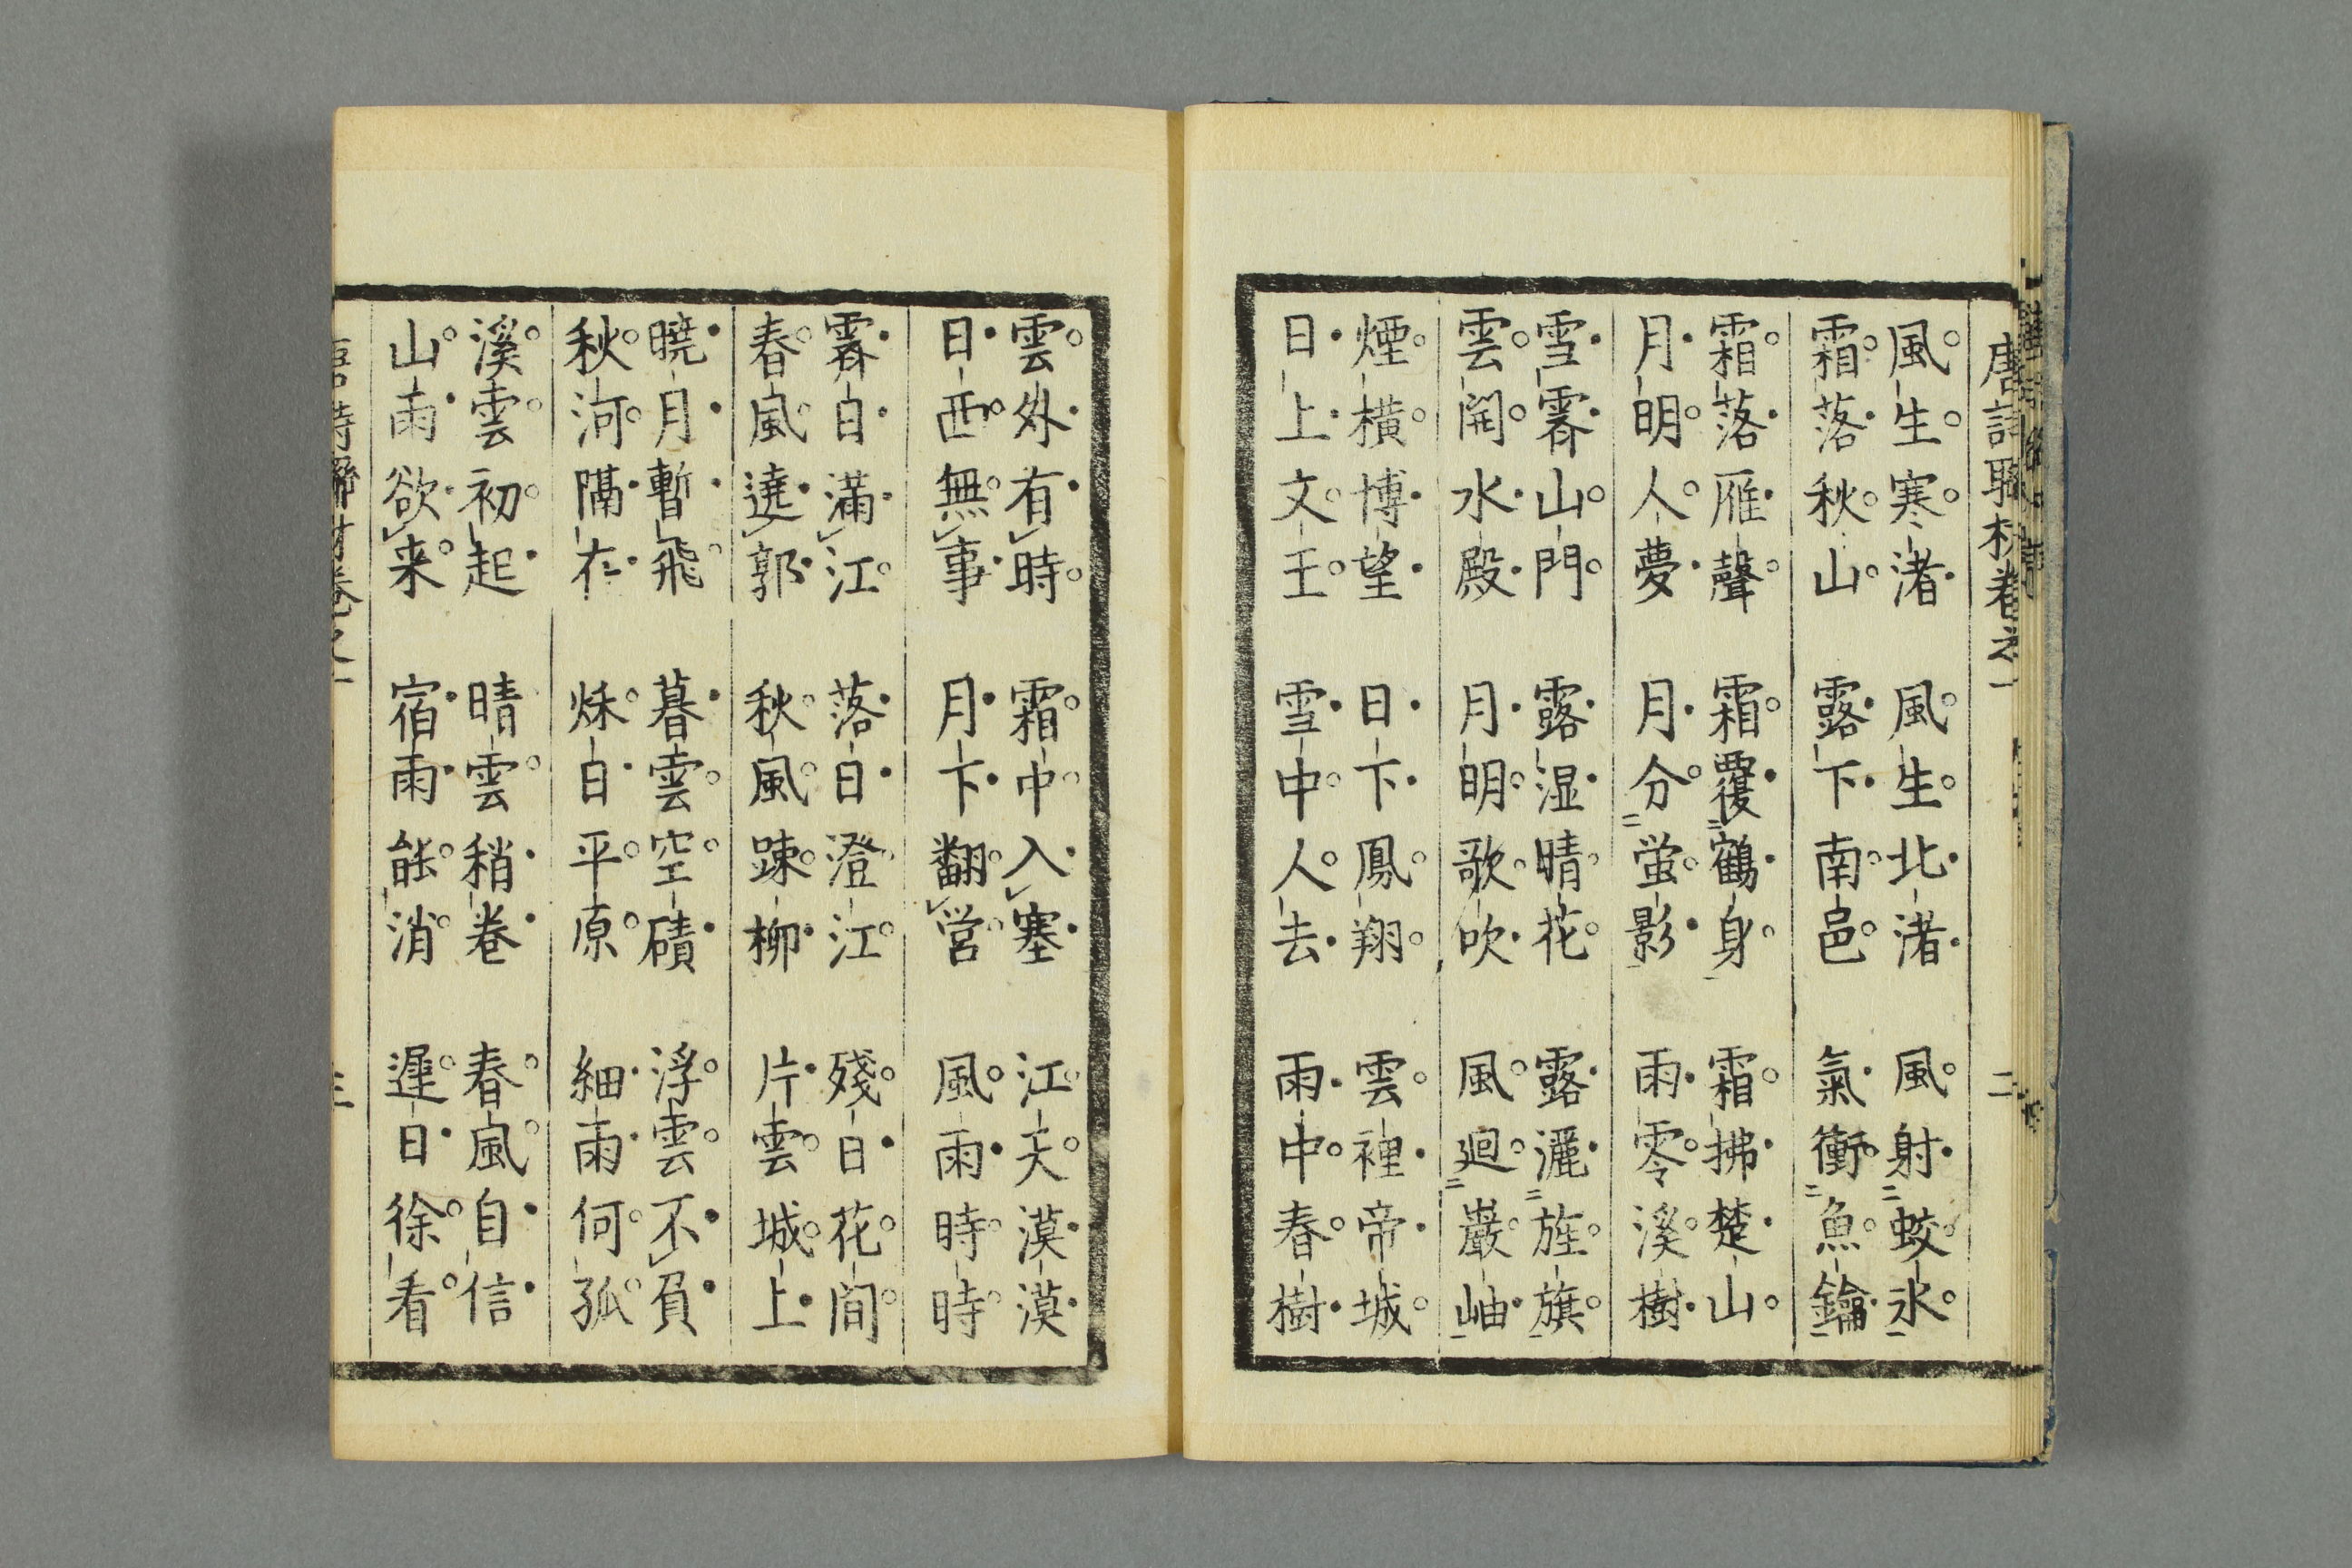 唐詩聯材卷之一 二
風生寒渚 風生北渚 風射蛟氷
霜落秋山 露下南邑 氣衝魚鑰
霜落雁聲 霜覆鶴身 霜拂楚山
月明人夢 月分蛍影 雨零溪樹
雪霽山門 露湿晴花 露灑旌旗
雲開水殿 月明歌吹 風廻巖岫
煙横博望 日下鳳翔 雲裡帝城
日上文王 雪中人去 雨中春樹
雲外有時 霜中入塞 江天漠漠
日西無事 月下翻営 風雨時時
霽日滿江 落日澄江 殘日花間
春風遶郭 秋風踈柳 片雲城上
曉月暫飛 暮雲空磧 浮雲不負
秋河隔在 秌日平原 細雨何孤
溪雲初起 晴雲稍卷 春風自信
山雨欲来 宿雨能消 遲日徐看